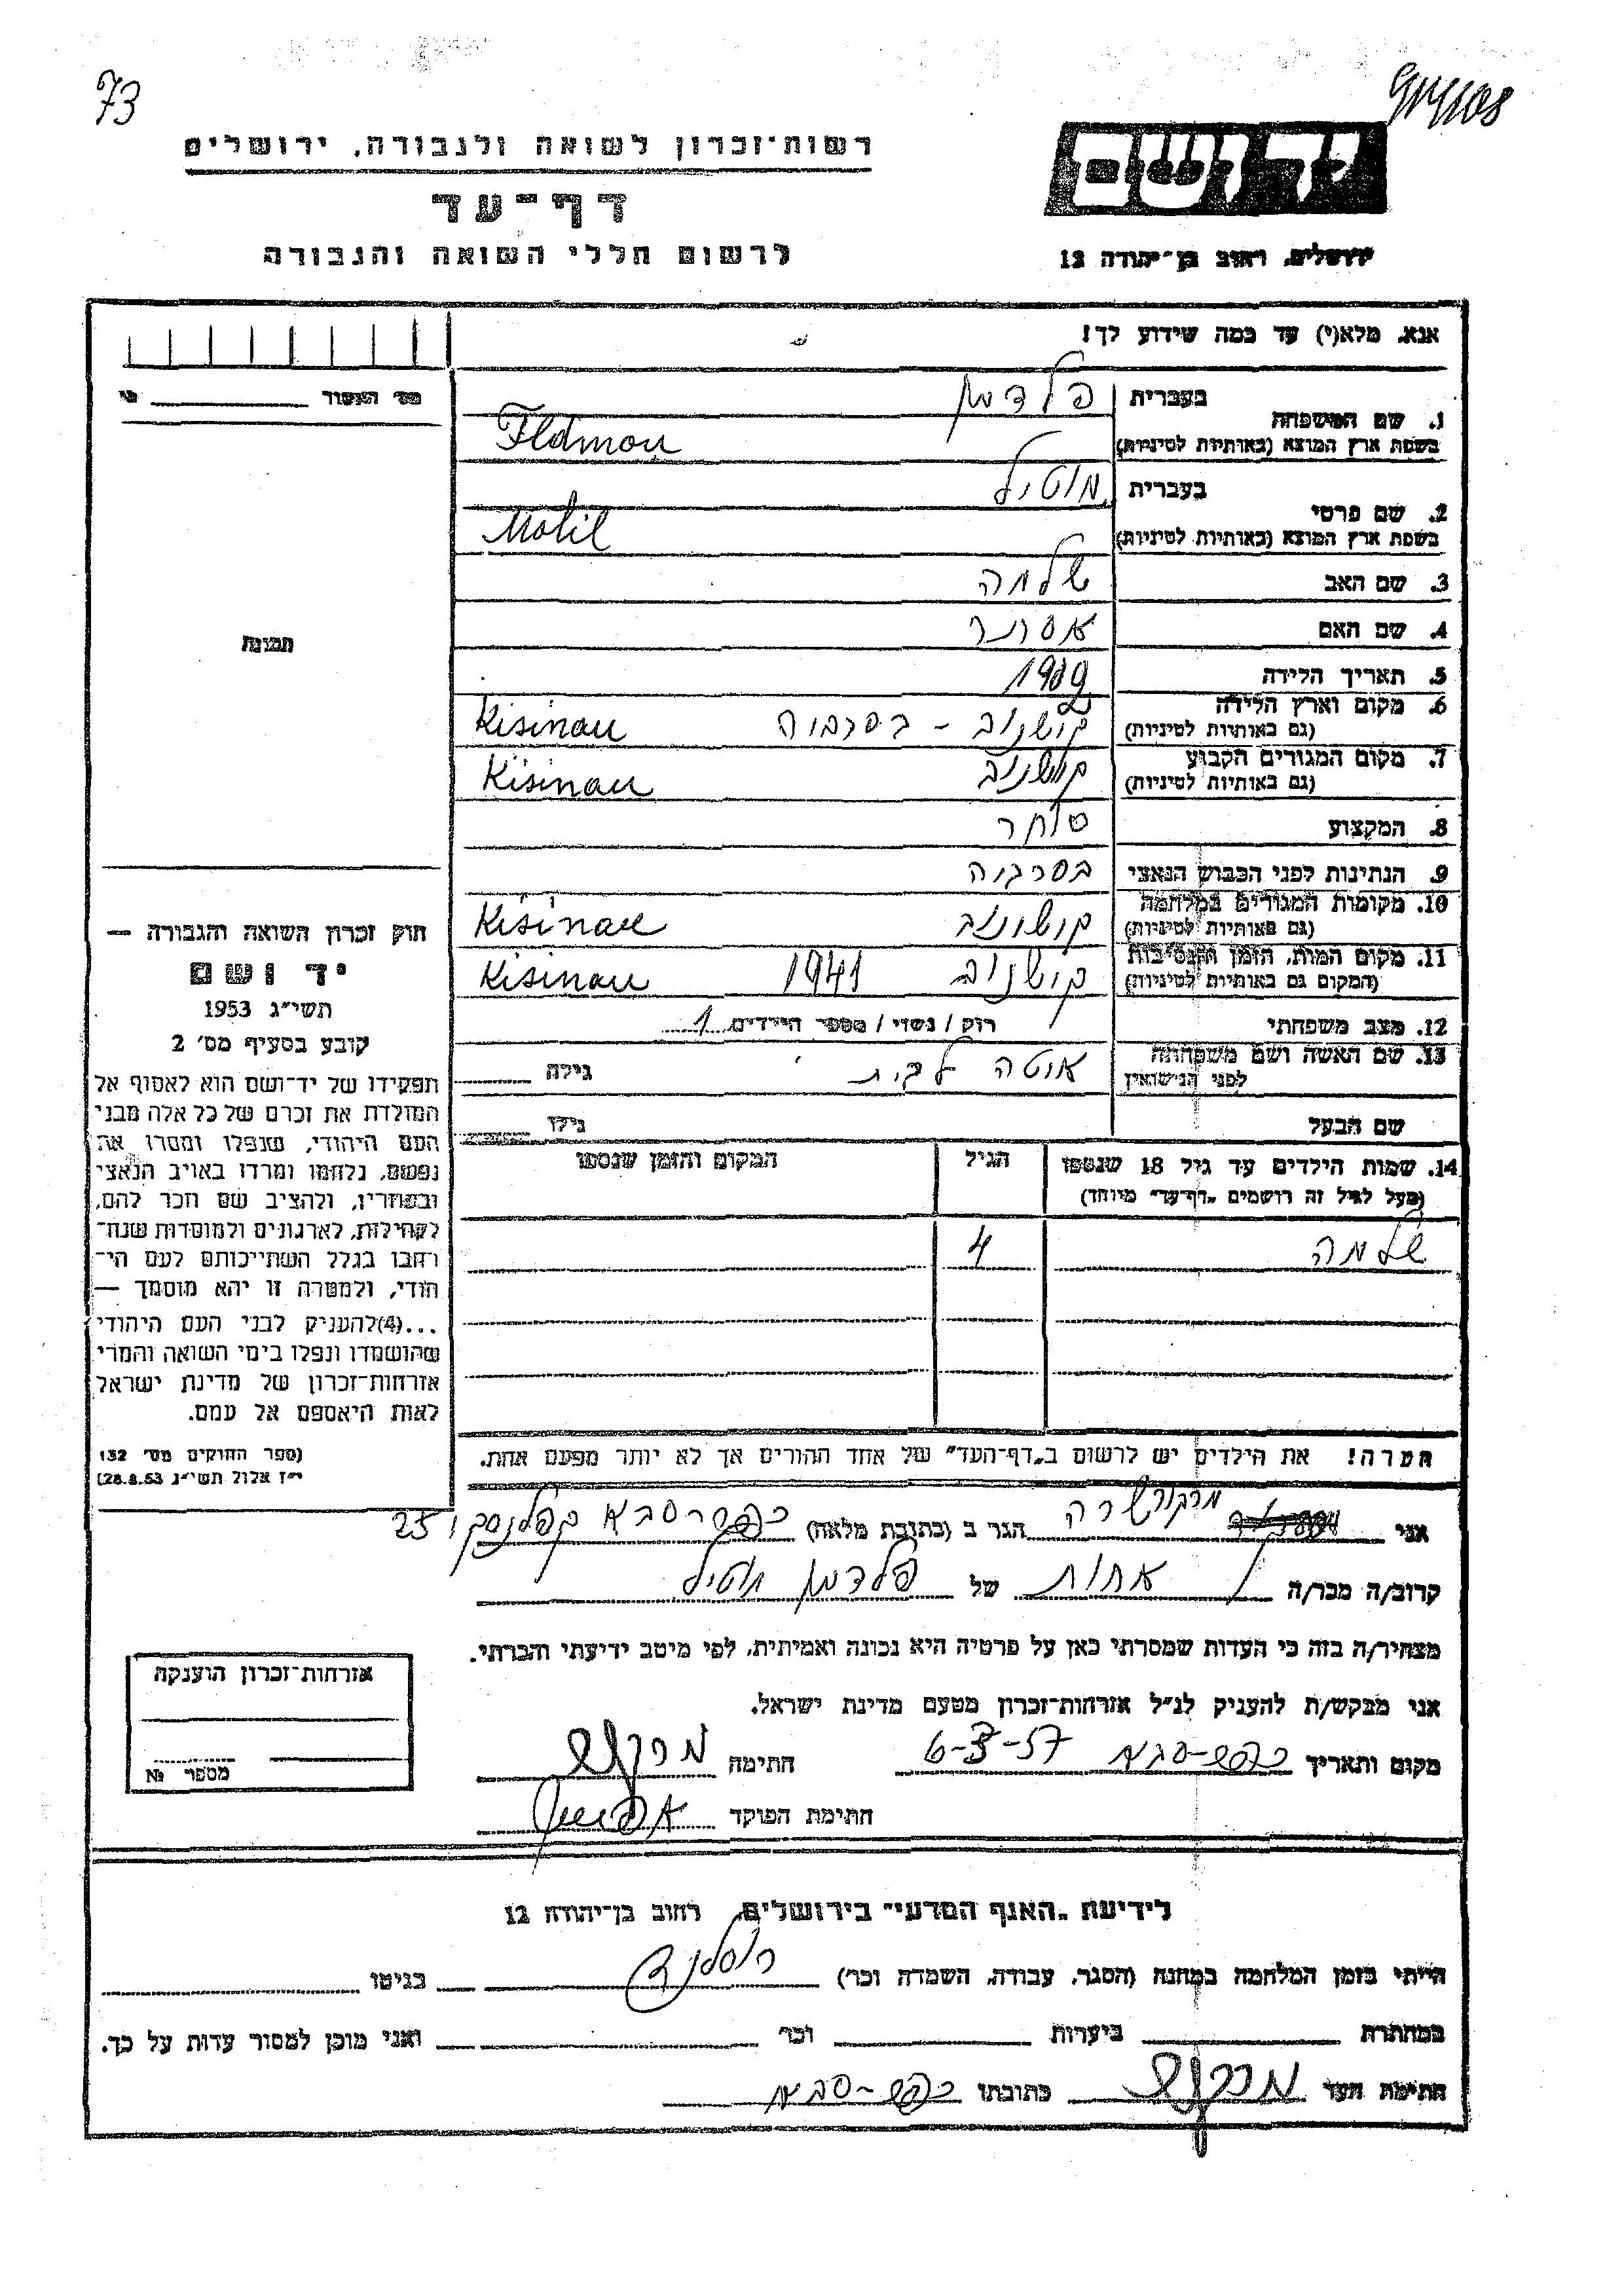 73
רשות־זכרון לשואה ולגבורה, ירושלים
דף־עד
לרשום חללי השואה והגבורה
יד ושם
ירושלים, רחוב בן־יהודה 12
אנא, מלא(י) עד כמה שידוע לך!
מס' האשור
1. שם המשפחה
בעברית פלדמן
בשפת ארץ המוצא (באותיות לטיניות) Feldman
2. שם פרטי
בעברית מוטיל
בשפת ארץ המוצא (באותיות לטיניות) Motil
3. שם האב שלמה
4. שם האם אסתר
5. תאריך הלידה 1909
6. מקום וארץ הלידה קושנוב - בסרביה Kisinau
(גם באותיות לטיניות)
7. מקום המגורים הקבוע קושנוב Kisinau
(גם באותיות לטיניות)
8. המקצוע סוחר
9. הנתינות לפני הכבוש הנאצי בסרביה
10. מקומות המגורים במלחמה קושונוב Kisinau
(גם באותיות לטיניות)
11. מקום המות, הזמן והנסיבות קושנוב 1941 Kisinau
(המקום גם באותיות לטיניות)
12. מצב משפחתי רוק / נשוי / מספר הילדים 1
13. שם האשה ושם משפחתה
לפני הנישואין
גילה
שם הבעל גילו
14. שמות הילדים עד גיל 18 שנספו הגיל המקום והזמן שנספו
(מעל לגיל זה רושמים "דף־עד" מיוחד)
שלמה 4
הערה! את הילדים יש לרשום ב"דף־העד" של אחד ההורים אך לא יותר מפעם אחת.
תמונה
חוק זכרון השואה והגבורה —
יד ושם
תשי"ג 1953
קובע בסעיף מס' 2
תפקידו של יד־ושם הוא לאסוף אל
המולדת את זכרם של כל אלה מבני
העם היהודי, שנפלו ומסרו את
נפשם, נלחמו ומרדו באויב הנאצי
ובעוזריו, ולהציב שם וזכר להם,
לקהילות, לארגונים ולמוסדות שנח־
רבו בגלל השתייכותם לעם הי־
הודי, ולמטרה זו יהא מוסמך —
...(4)להעניק לבני העם היהודי
שהושמדו ונפלו בימי השואה והמרי
אזרחות־זכרון של מדינת ישראל
לאות היאספם אל עמם.
(ספר החוקים מס' 132
י"ז אלול תשי"ג 28.8.53)
אני שרה הגר ב (כתובת מלאה) כפר סבא קפלנסקי 25
קרוב/ה מכר/ה אחות של פלדמן מוטיל
מצהיר/ה בזה כי העדות שמסרתי כאן על פרטיה היא נכונה ואמיתית, לפי מיטב ידיעתי והכרתי.
אני מבקש/ת להעניק לנ"ל אזרחות־זכרון מטעם מדינת ישראל.
מקום ותאריך כפר-סבא 6-3-57 חתימה
חתימת הפוקד
אזרחות־זכרון הוענקה
מספר №
לידיעת "האגף המדעי" בירושלים, רחוב בן־יהודה 12
הייתי בזמן המלחמה במחנה (הסגר, עבודה, השמדה וכו') בגיטו
במחתרת ביערות וכו' ואני מוכן למסור עדות על כך.
חתימת העד כתובתו כפר-סבא